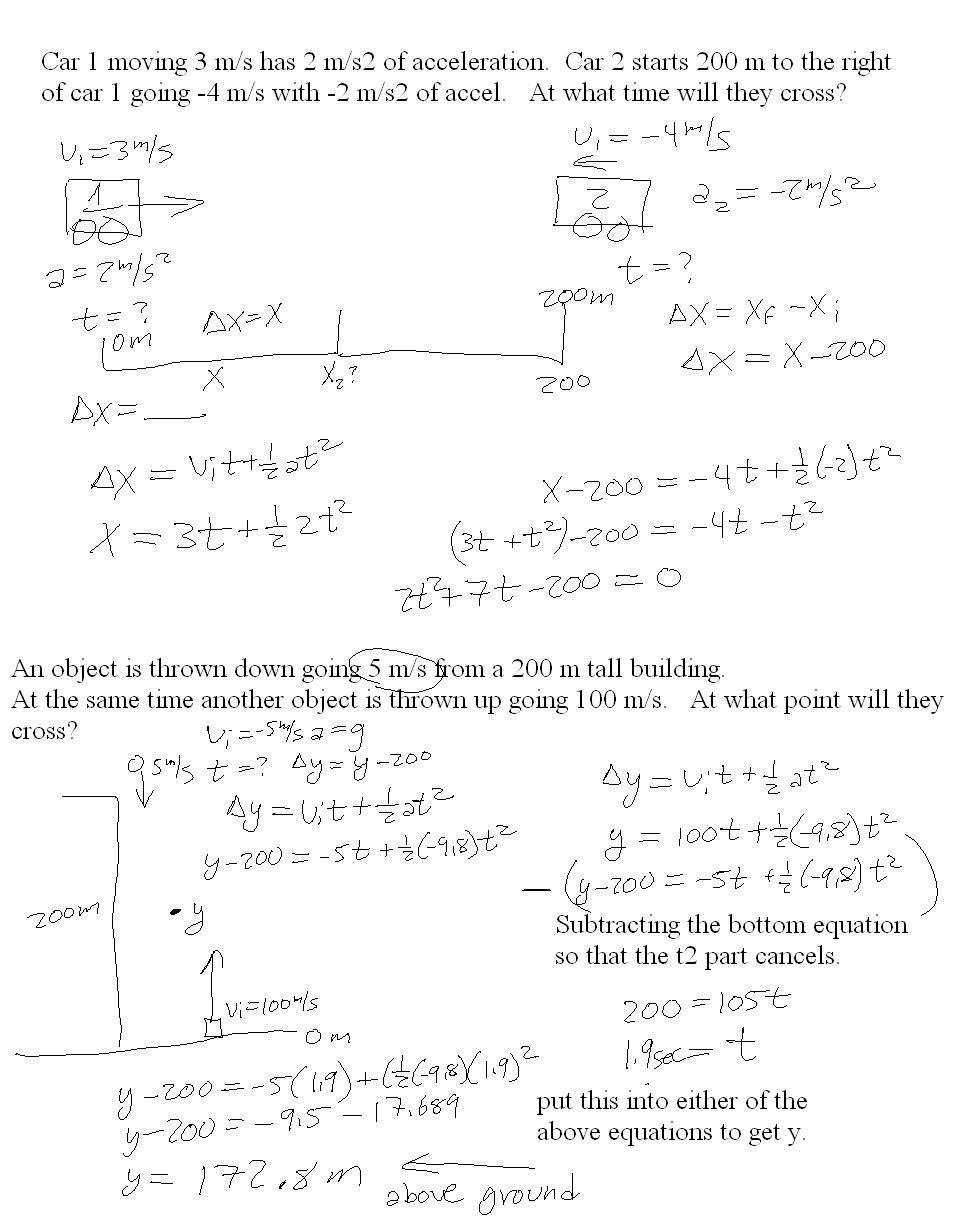 Car 1 moving 3 m/s has 2 m/s2 of acceleration. Car 2 starts 200 m to the right
of car 1 going -4 m/s with -2 m/s2 of accel. At what time will they cross?
Vi=3m/s
1
a=2m/s²
t=?
0m
Δx=x
x
x₂?
Δx=___
Vi=-4m/s
2
a₂=-2m/s²
t=?
200m
200
Δx=xf-xi
Δx=x-200
Δx=Vit+½at²
x=3t+½2t²
x-200=-4t+½(-2)t²
(3t+t²)-200=-4t-t²
2t²+7t-200=0
An object is thrown down going 5 m/s from a 200 m tall building.
At the same time another object is thrown up going 100 m/s. At what point will they
cross?
Vi=-5m/s a=g
5m/s t=? Δy=y-200
Δy=Vit+½at²
y-200=-5t+½(-9.8)t²
200m
y
Vi=100m/s
0m
Δy=Vit+½at²
y=100t+½(-9.8)t²
-(y-200=-5t+½(-9.8)t²)
Subtracting the bottom equation
so that the t2 part cancels.
200=105t
1.9sec=t
put this into either of the
above equations to get y.
y-200=-5(1.9)+(½(-9.8)(1.9)²
y-200=-9.5-17.689
y=172.8m
above ground